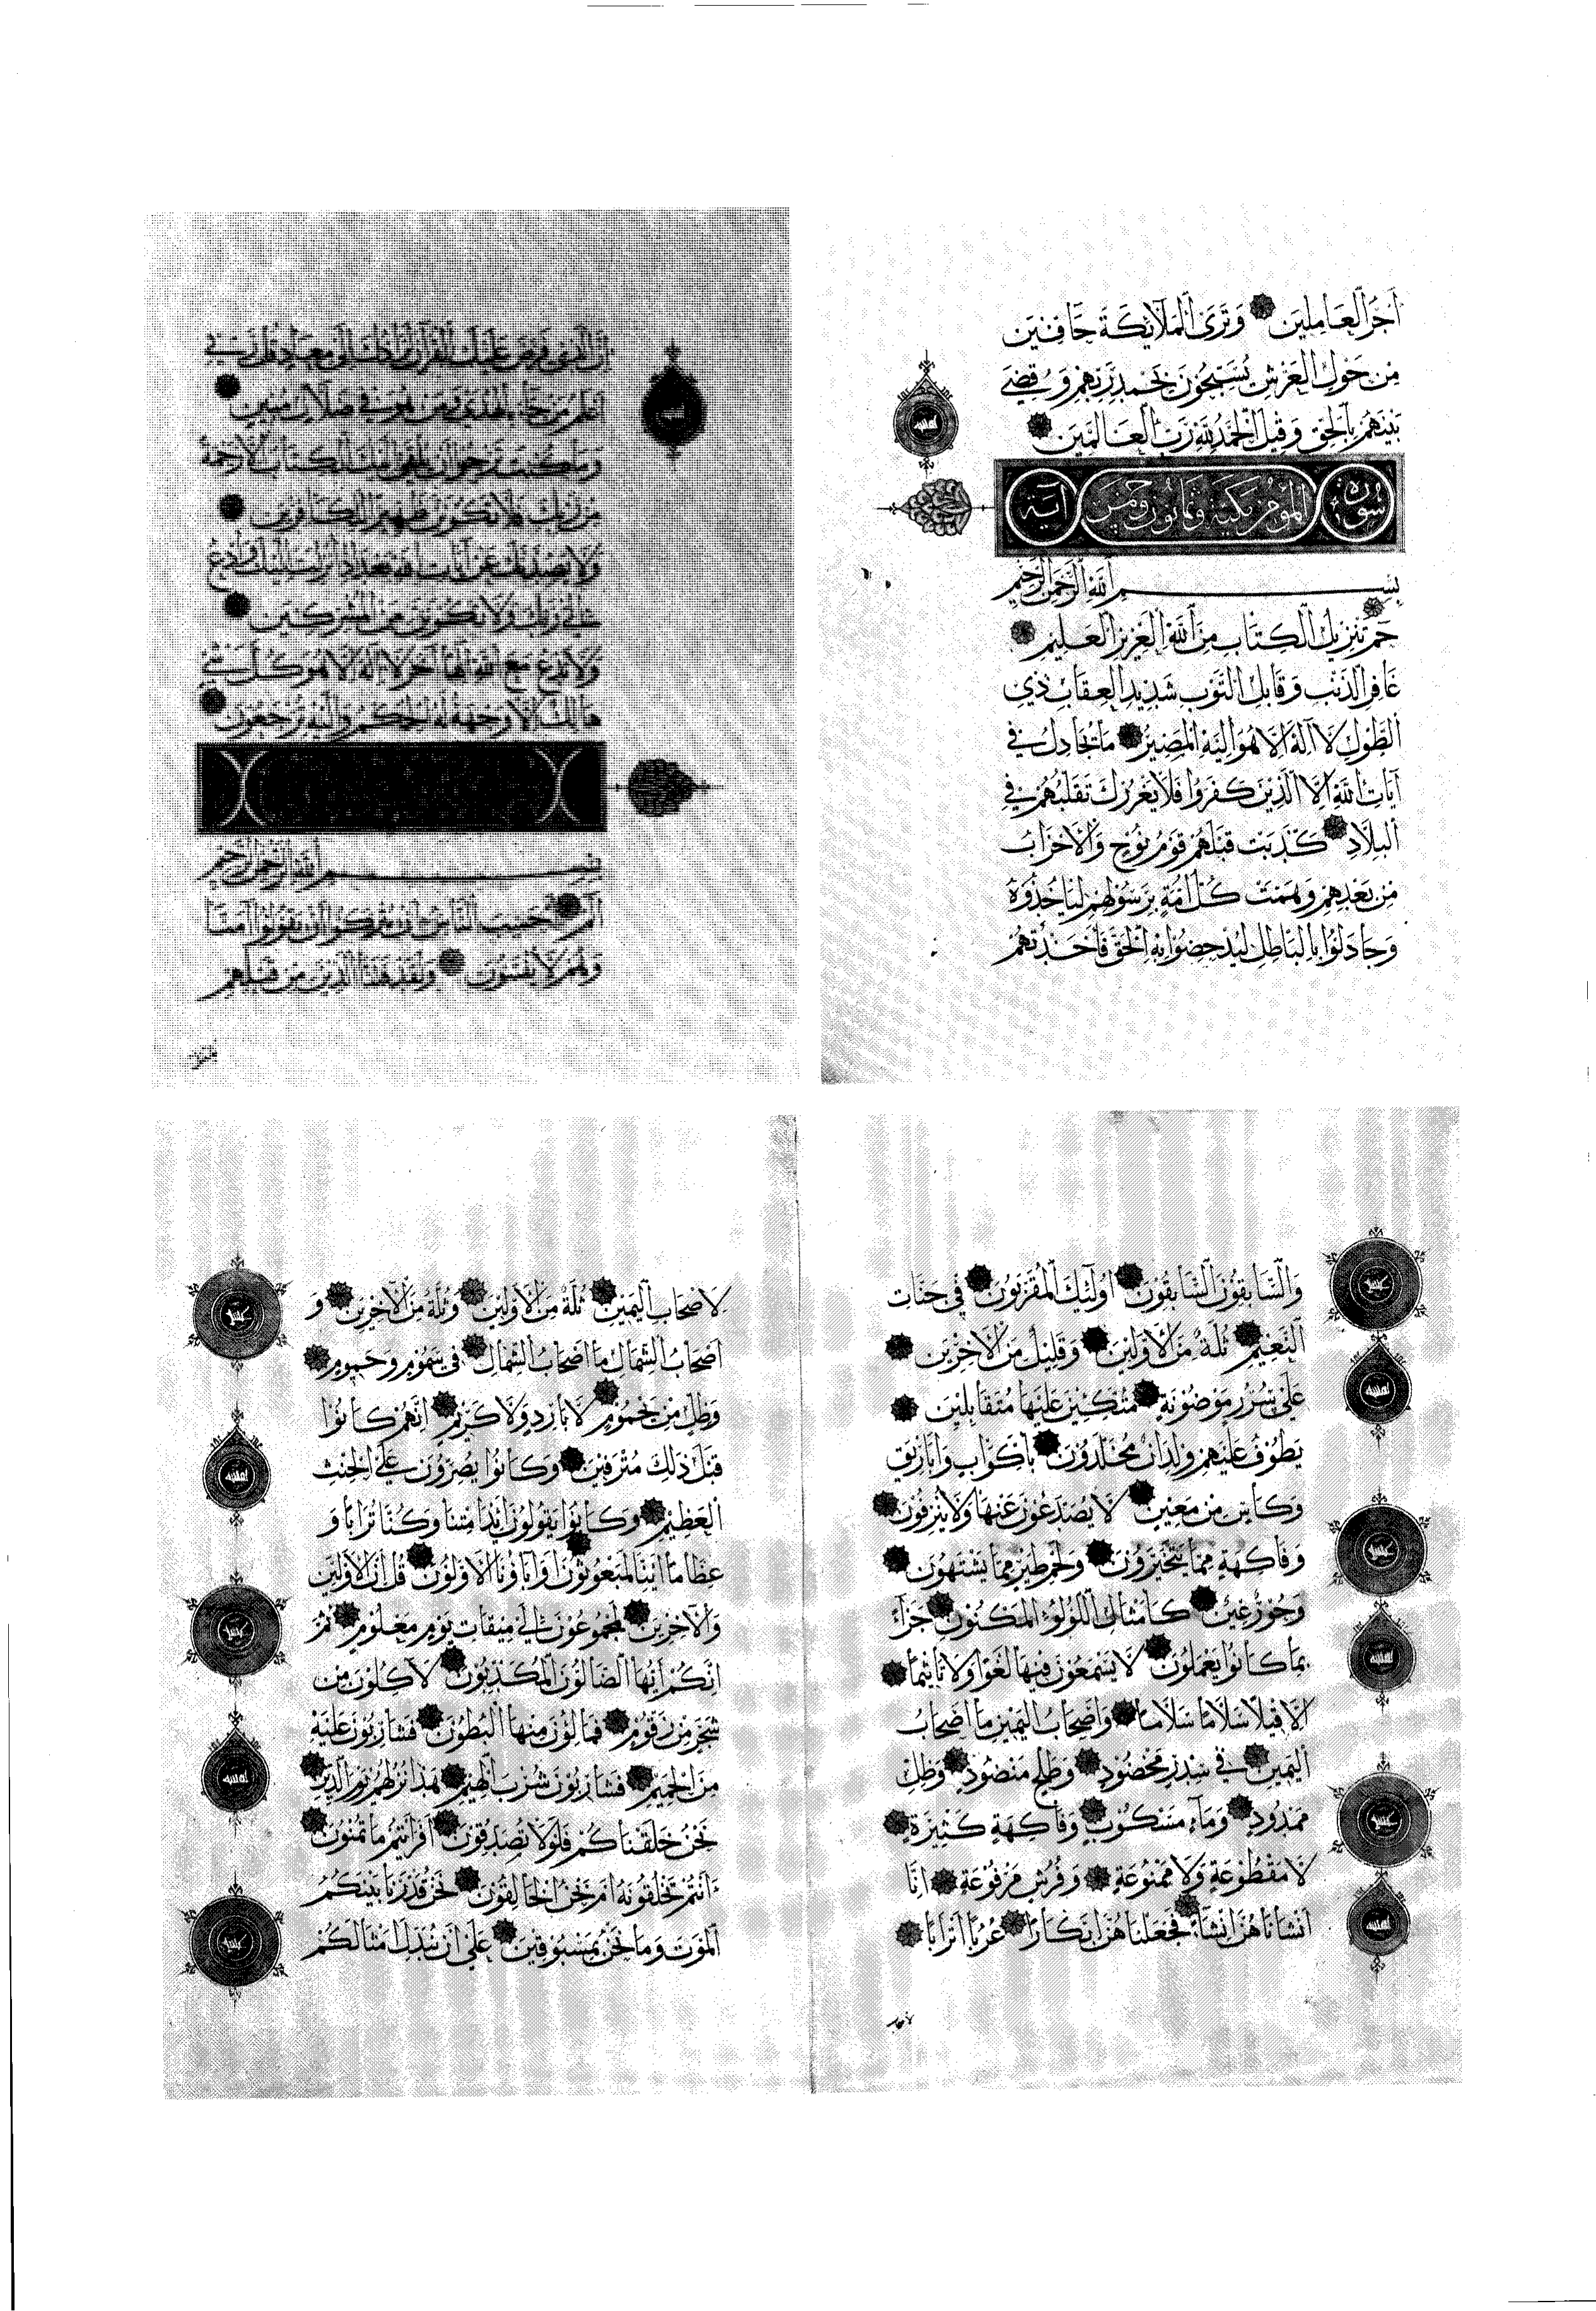 أَجْرُ الْعَامِلِينَ وَتَرَى الْمَلَائِكَةَ حَافِّينَ
مِنْ حَوْلِ الْعَرْشِ يُسَبِّحُونَ بِحَمْدِ رَبِّهِمْ وَقُضِيَ
بَيْنَهُمْ بِالْحَقِّ وَقِيلَ الْحَمْدُ لِلَّهِ رَبِّ الْعَالَمِينَ
سورة المؤمن مكية وثمانون وخمس آية
بِسْمِ اللَّهِ الرَّحْمَنِ الرَّحِيمِ
حم تَنْزِيلُ الْكِتَابِ مِنَ اللَّهِ الْعَزِيزِ الْعَلِيمِ
غَافِرِ الذَّنْبِ وَقَابِلِ التَّوْبِ شَدِيدِ الْعِقَابِ ذِي
الطَّوْلِ لَا إِلَهَ إِلَّا هُوَ إِلَيْهِ الْمَصِيرُ مَا يُجَادِلُ فِي
آيَاتِ اللَّهِ إِلَّا الَّذِينَ كَفَرُوا فَلَا يَغْرُرْكَ تَقَلُّبُهُمْ فِي
الْبِلَادِ كَذَّبَتْ قَبْلَهُمْ قَوْمُ نُوحٍ وَالْأَحْزَابُ
مِنْ بَعْدِهِمْ وَهَمَّتْ كُلُّ أُمَّةٍ بِرَسُولِهِمْ لِيَأْخُذُوهُ
وَجَادَلُوا بِالْبَاطِلِ لِيُدْحِضُوا بِهِ الْحَقَّ فَأَخَذْتُهُمْ
إِنَّ الَّذِي فَرَضَ عَلَيْكَ الْقُرْآنَ لَرَادُّكَ إِلَى مَعَادٍ قُلْ رَبِّي
أَعْلَمُ مَنْ جَاءَ بِالْهُدَى وَمَنْ هُوَ فِي ضَلَالٍ مُبِينٍ
وَمَا كُنْتَ تَرْجُو أَنْ يُلْقَى إِلَيْكَ الْكِتَابُ إِلَّا رَحْمَةً
مِنْ رَبِّكَ فَلَا تَكُونَنَّ ظَهِيرًا لِلْكَافِرِينَ
وَلَا يَصُدُّنَّكَ عَنْ آيَاتِ اللَّهِ بَعْدَ إِذْ أُنْزِلَتْ إِلَيْكَ وَادْعُ
إِلَى رَبِّكَ وَلَا تَكُونَنَّ مِنَ الْمُشْرِكِينَ
وَلَا تَدْعُ مَعَ اللَّهِ إِلَهًا آخَرَ لَا إِلَهَ إِلَّا هُوَ كُلُّ شَيْءٍ
هَالِكٌ إِلَّا وَجْهَهُ لَهُ الْحُكْمُ وَإِلَيْهِ تُرْجَعُونَ
بِسْمِ اللَّهِ الرَّحْمَنِ الرَّحِيمِ
الم أَحَسِبَ النَّاسُ أَنْ يُتْرَكُوا أَنْ يَقُولُوا آمَنَّا
وَهُمْ لَا يُفْتَنُونَ وَلَقَدْ فَتَنَّا الَّذِينَ مِنْ قَبْلِهِمْ
وَالسَّابِقُونَ السَّابِقُونَ أُولَئِكَ الْمُقَرَّبُونَ فِي جَنَّاتِ
النَّعِيمِ ثُلَّةٌ مِنَ الْأَوَّلِينَ وَقَلِيلٌ مِنَ الْآخِرِينَ
عَلَى سُرُرٍ مَوْضُونَةٍ مُتَّكِئِينَ عَلَيْهَا مُتَقَابِلِينَ
يَطُوفُ عَلَيْهِمْ وِلْدَانٌ مُخَلَّدُونَ بِأَكْوَابٍ وَأَبَارِيقَ
وَكَأْسٍ مِنْ مَعِينٍ لَا يُصَدَّعُونَ عَنْهَا وَلَا يُنْزِفُونَ
وَفَاكِهَةٍ مِمَّا يَتَخَيَّرُونَ وَلَحْمِ طَيْرٍ مِمَّا يَشْتَهُونَ
وَحُورٌ عِينٌ كَأَمْثَالِ اللُّؤْلُؤِ الْمَكْنُونِ جَزَاءً
بِمَا كَانُوا يَعْمَلُونَ لَا يَسْمَعُونَ فِيهَا لَغْوًا وَلَا تَأْثِيمًا
إِلَّا قِيلًا سَلَامًا سَلَامًا وَأَصْحَابُ الْيَمِينِ مَا أَصْحَابُ
الْيَمِينِ فِي سِدْرٍ مَخْضُودٍ وَطَلْحٍ مَنْضُودٍ وَظِلٍّ
مَمْدُودٍ وَمَاءٍ مَسْكُوبٍ وَفَاكِهَةٍ كَثِيرَةٍ
لَا مَقْطُوعَةٍ وَلَا مَمْنُوعَةٍ وَفُرُشٍ مَرْفُوعَةٍ إِنَّا
أَنْشَأْنَاهُنَّ إِنْشَاءً فَجَعَلْنَاهُنَّ أَبْكَارًا عُرُبًا أَتْرَابًا
لأصحاب
لِأَصْحَابِ الْيَمِينِ ثُلَّةٌ مِنَ الْأَوَّلِينَ وَثُلَّةٌ مِنَ الْآخِرِينَ وَ
أَصْحَابُ الشِّمَالِ مَا أَصْحَابُ الشِّمَالِ فِي سَمُومٍ وَحَمِيمٍ
وَظِلٍّ مِنْ يَحْمُومٍ لَا بَارِدٍ وَلَا كَرِيمٍ إِنَّهُمْ كَانُوا
قَبْلَ ذَلِكَ مُتْرَفِينَ وَكَانُوا يُصِرُّونَ عَلَى الْحِنْثِ
الْعَظِيمِ وَكَانُوا يَقُولُونَ أَئِذَا مِتْنَا وَكُنَّا تُرَابًا وَ
عِظَامًا أَئِنَّا لَمَبْعُوثُونَ أَوَآبَاؤُنَا الْأَوَّلُونَ قُلْ إِنَّ الْأَوَّلِينَ
وَالْآخِرِينَ لَمَجْمُوعُونَ إِلَى مِيقَاتِ يَوْمٍ مَعْلُومٍ ثُمَّ
إِنَّكُمْ أَيُّهَا الضَّالُّونَ الْمُكَذِّبُونَ لَآكِلُونَ مِنْ
شَجَرٍ مِنْ زَقُّومٍ فَمَالِئُونَ مِنْهَا الْبُطُونَ فَشَارِبُونَ عَلَيْهِ
مِنَ الْحَمِيمِ فَشَارِبُونَ شُرْبَ الْهِيمِ هَذَا نُزُلُهُمْ يَوْمَ الدِّينِ
نَحْنُ خَلَقْنَاكُمْ فَلَوْلَا تُصَدِّقُونَ أَفَرَأَيْتُمْ مَا تُمْنُونَ
أَأَنْتُمْ تَخْلُقُونَهُ أَمْ نَحْنُ الْخَالِقُونَ نَحْنُ قَدَّرْنَا بَيْنَكُمُ
الْمَوْتَ وَمَا نَحْنُ بِمَسْبُوقِينَ عَلَى أَنْ نُبَدِّلَ أَمْثَالَكُمْ